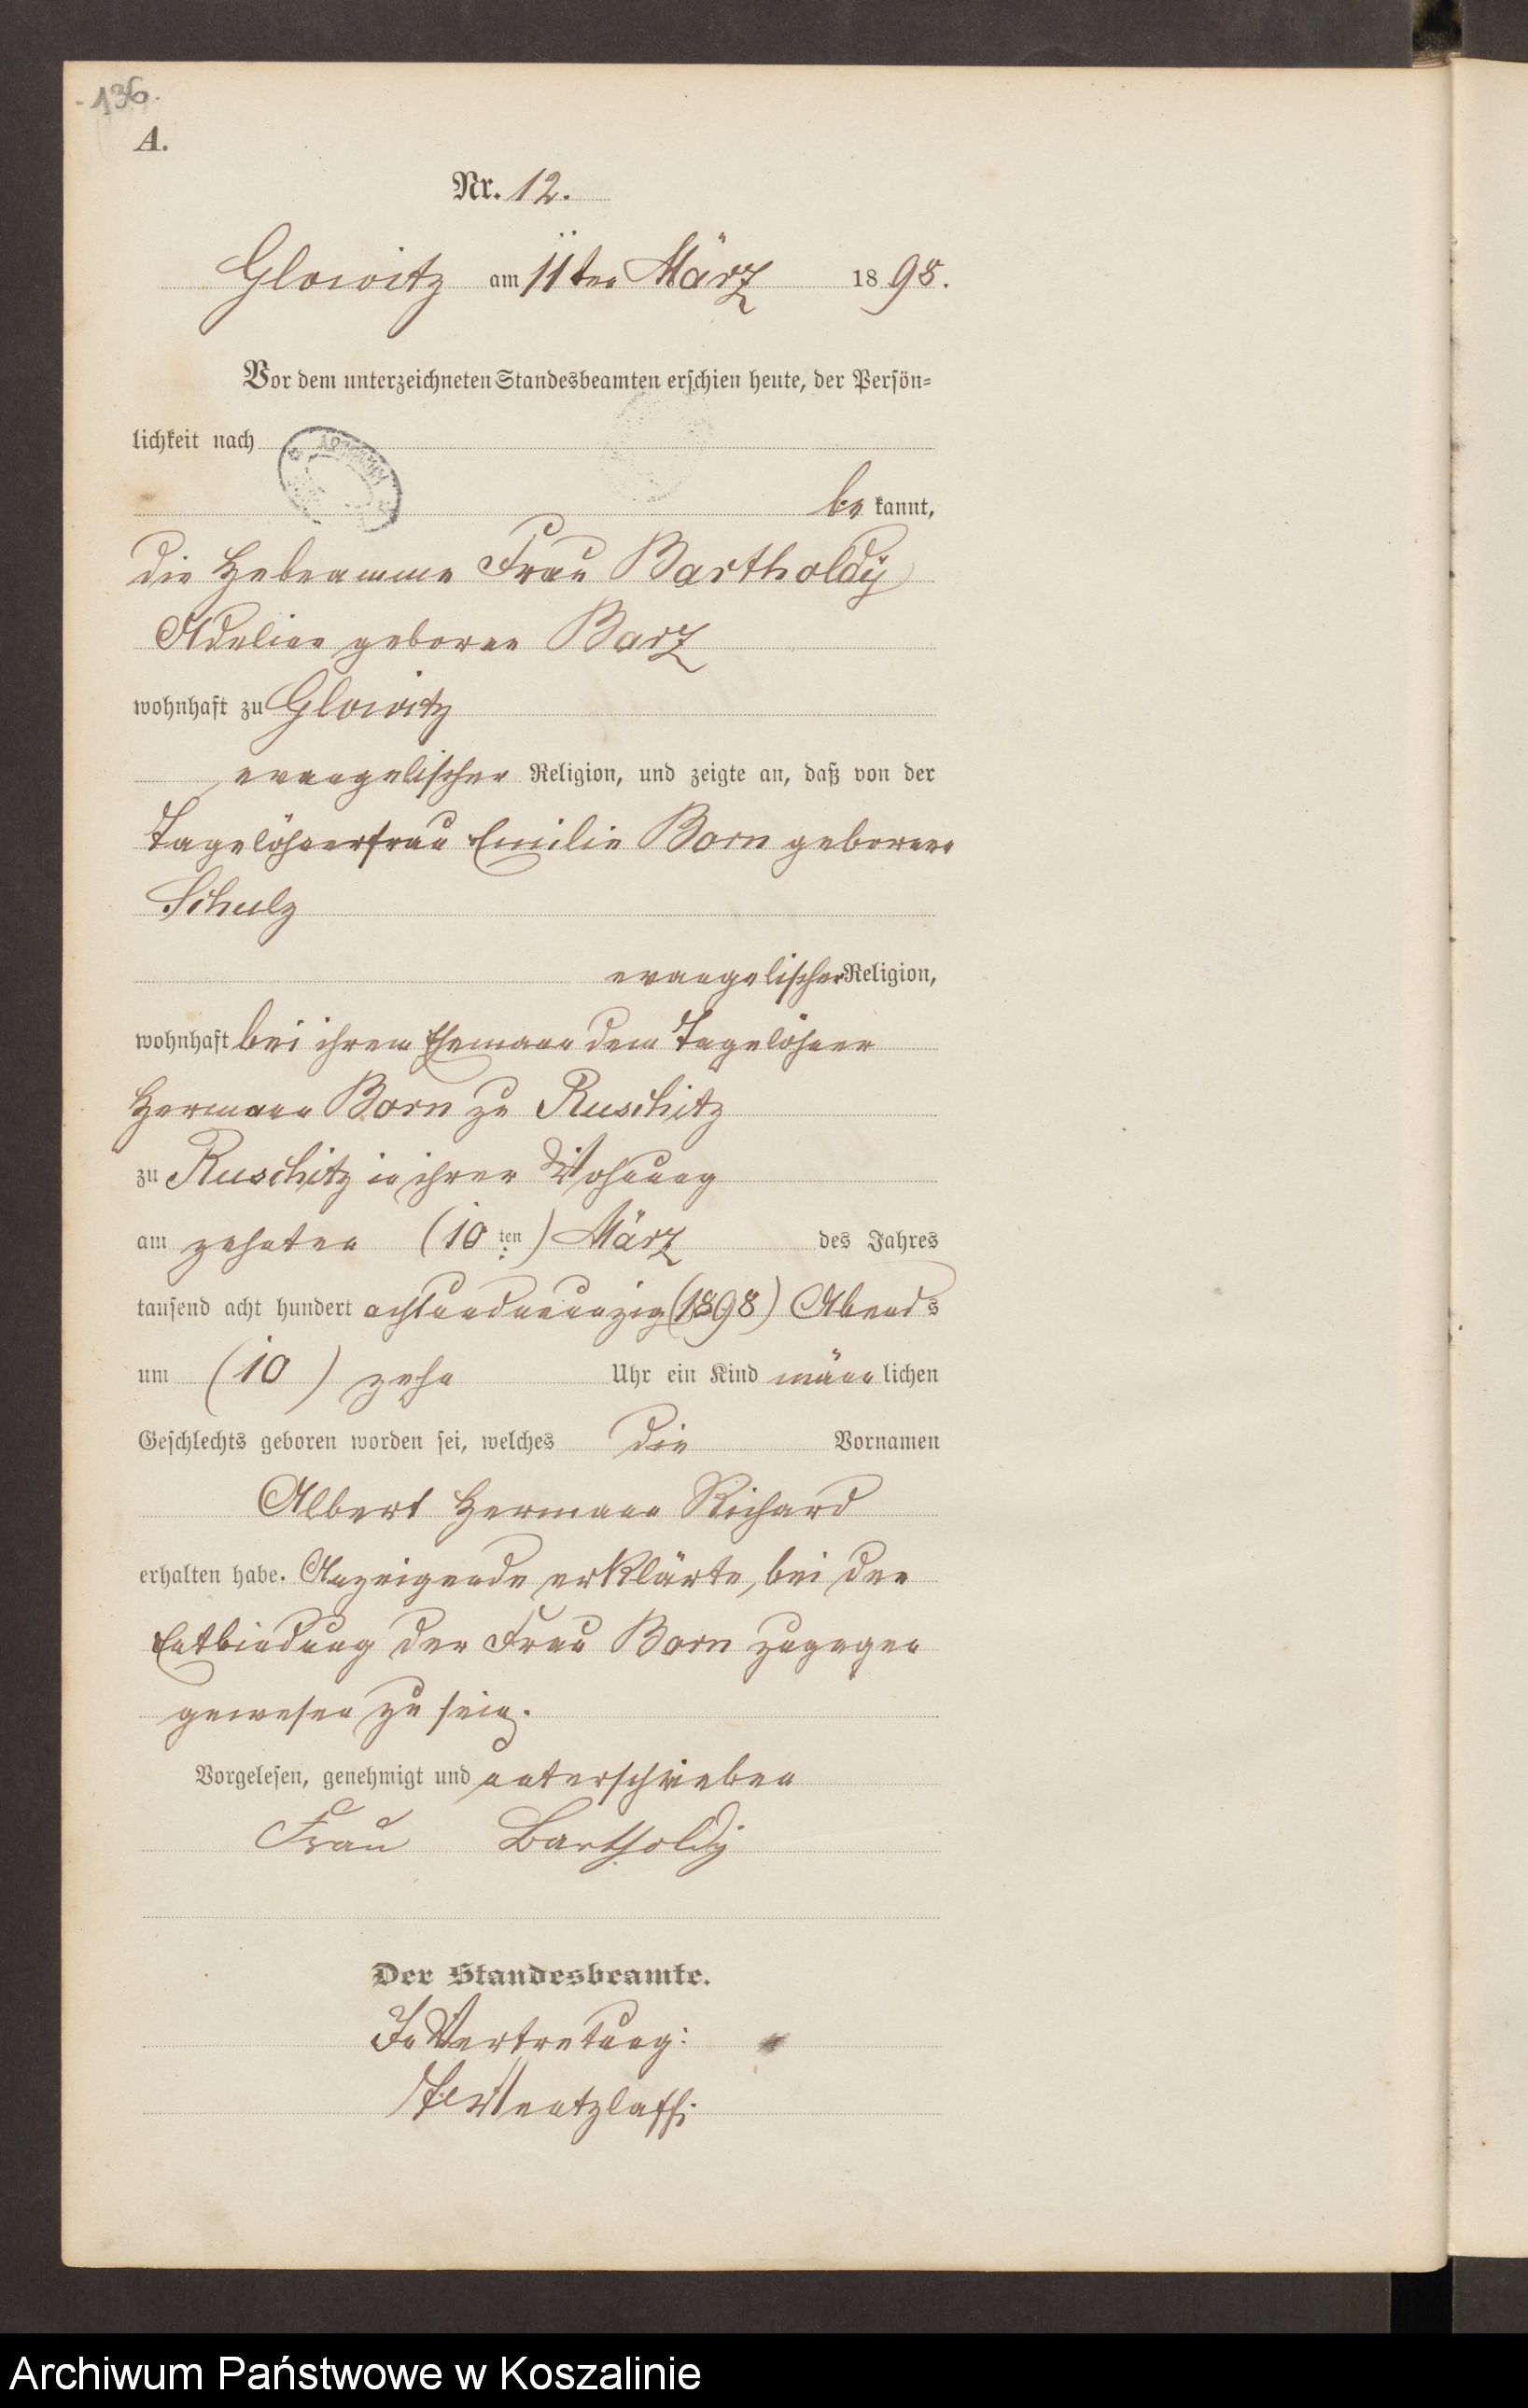 136.
A.
Nr. 12.
Glowitz am 11ten März 1898.
Vor dem unterzeichneten Standesbeamten erschien heute, der Persön=
lichkeit nach
be kannt,
die Hebeamme Frau Bartholdÿ
Adeline geborne Barz
wohnhaft zu Glowitz
evangelischer Religion, und zeigte an, daß von der
Tagelöhnerfrau Emilie Born geborene
Schulz
evangelischer Religion,
wohnhaft bei ihrem Ehemann dem Tagelöhner
Hermann Born zu Ruschitz
zu Ruschitz in ihrer Wohnung
am zehnten (10ten) März des Jahres
tausend acht hundert achtundneunzig (1898) Abends
um (10) zehn Uhr ein Kind männlichen
Geschlechts geboren worden sei, welches die Vornamen
Albert Hermann Richard
erhalten habe. Anzeigende erklärte, bei der
Entbindung der Frau Born zugegen
gewesen zu sein.
Vorgelesen, genehmigt und unterschrieben
Frau Bartholdÿ
Der Standesbeamte.
In Vertretung:
Wentzlaff.
Archiwum Państwowe w Koszalinie